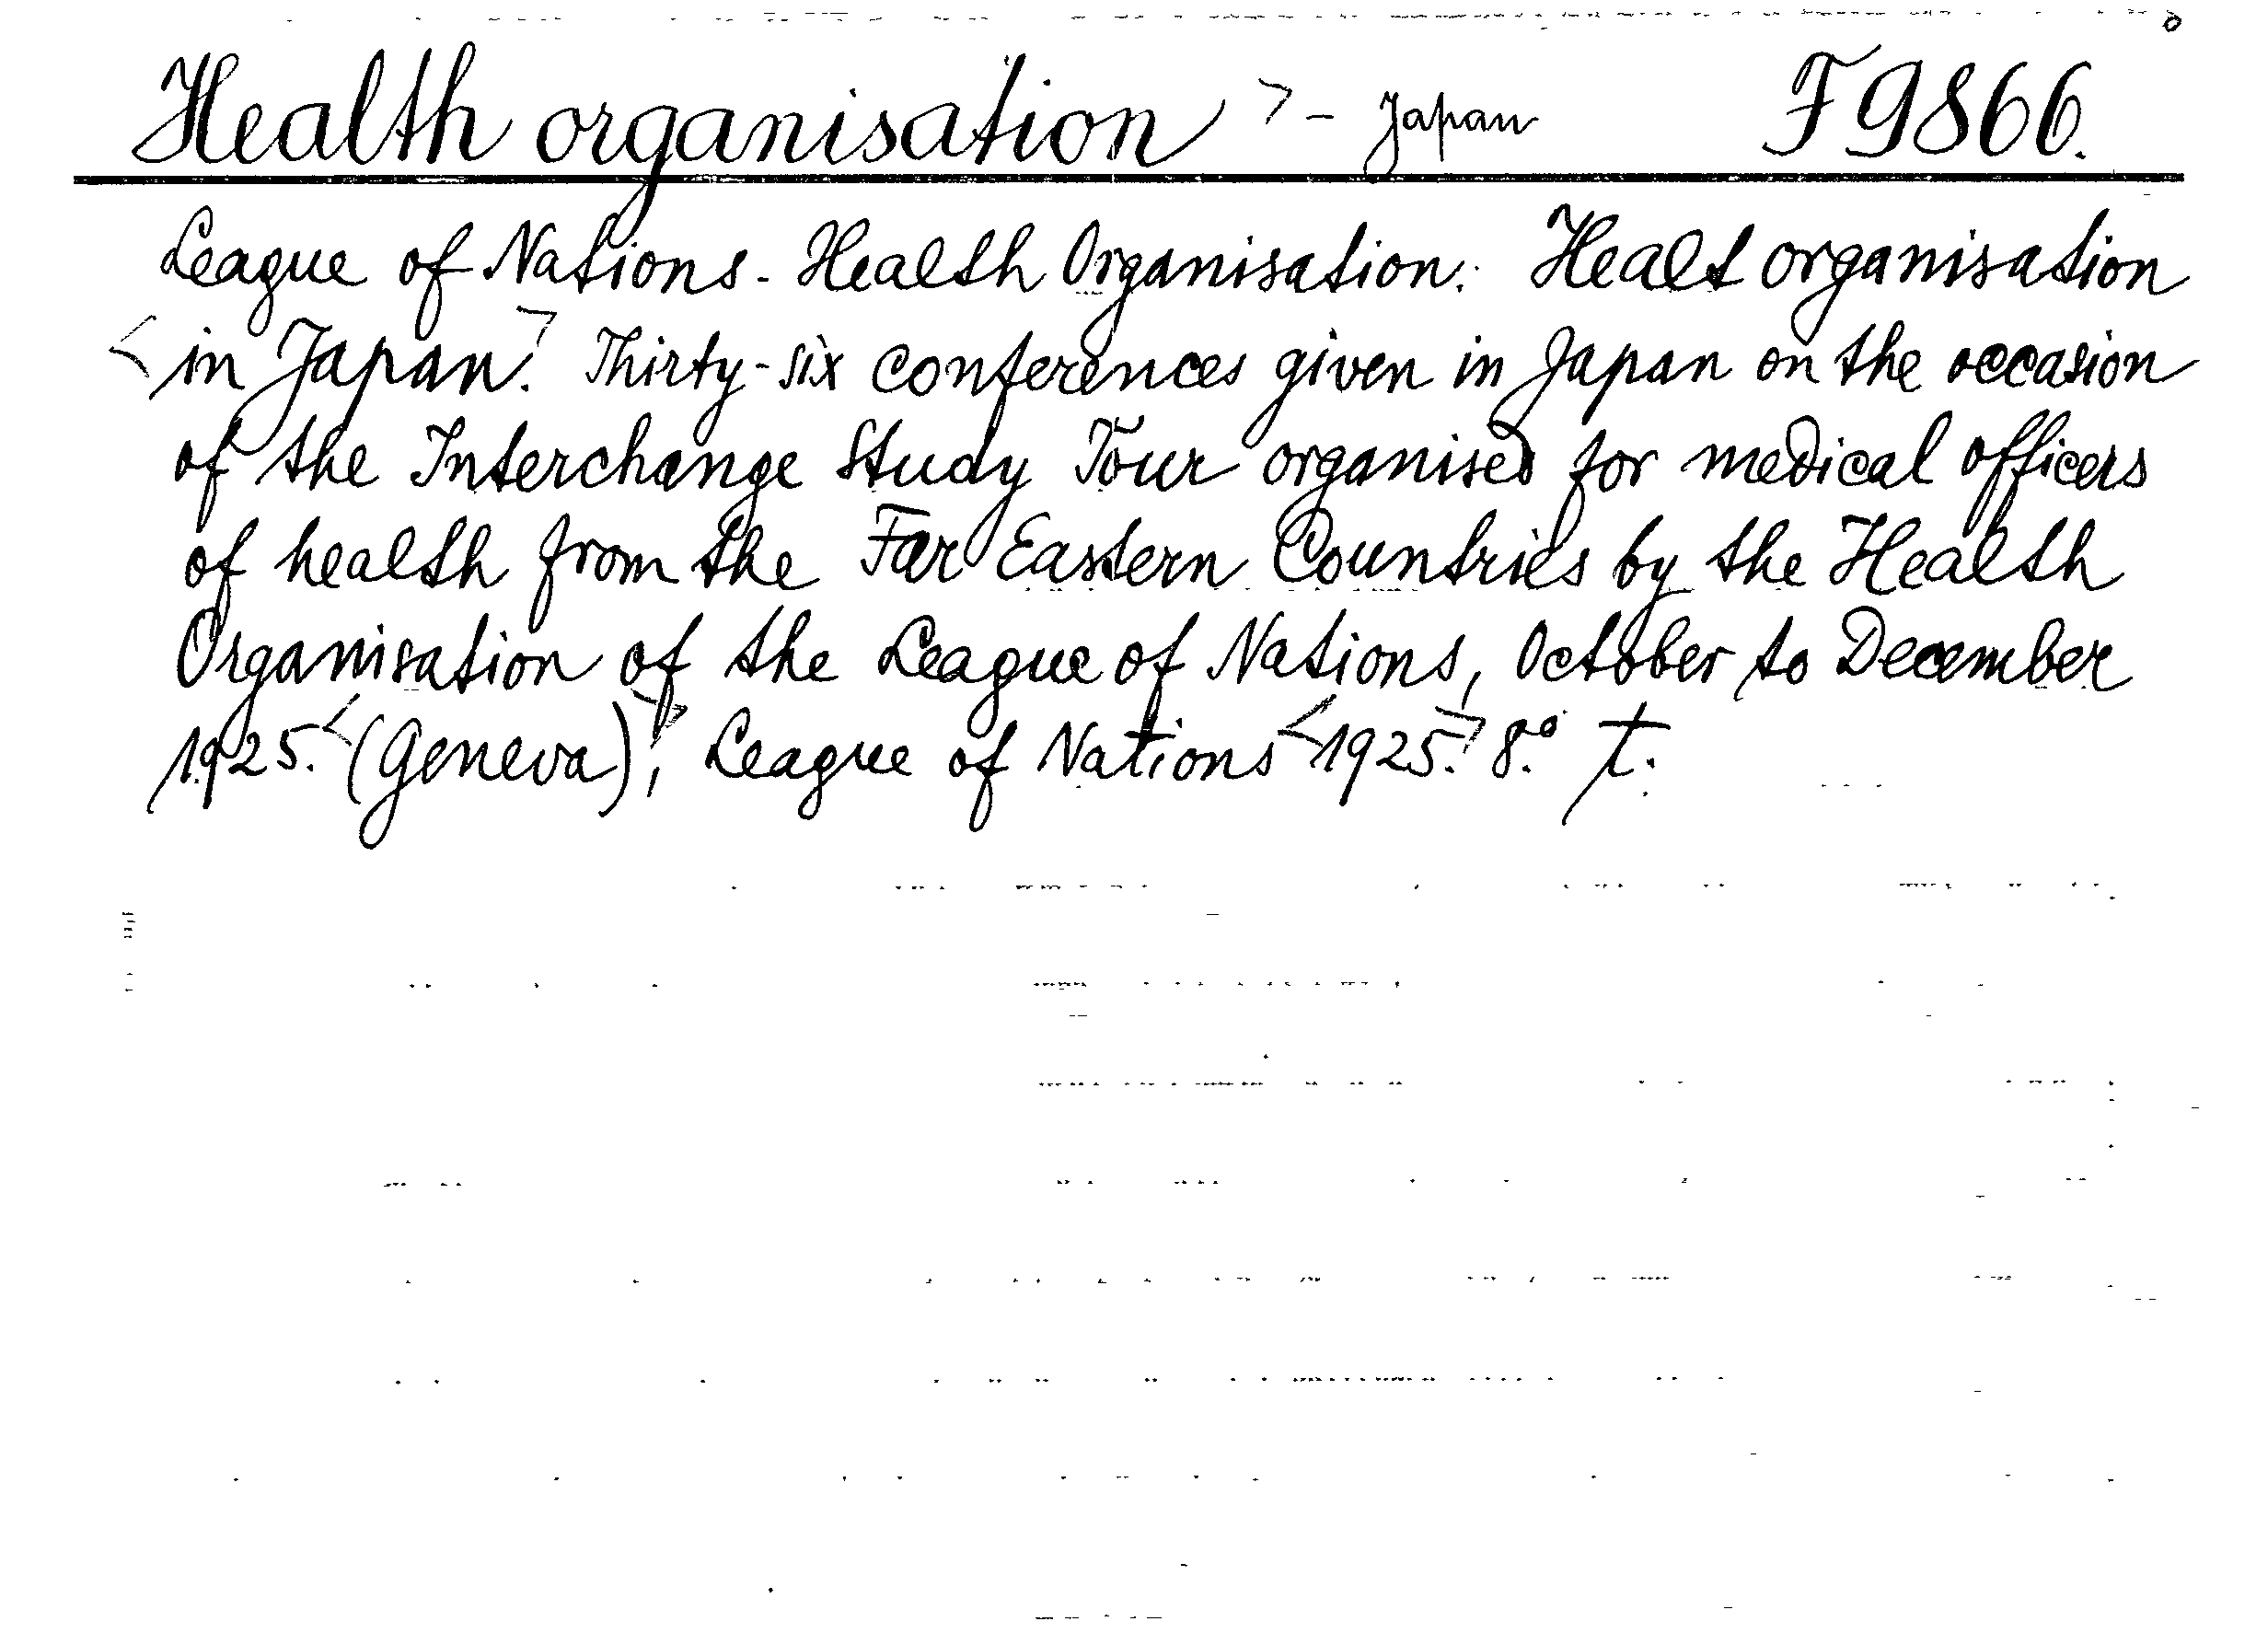 Health organisation > - Japan F 9866.
League of Nations - Health Organisation. Healt organisation
< in Japan.> Thirty-six conferences given in Japan on the occasion
of the Interchange Study Tour organised for medical officers
of health from the Far Eastern Countries by the Health
Organisation of the League of Nations, October to December
1925. <(Geneva),> League of Nations <1925.> 8.° T.